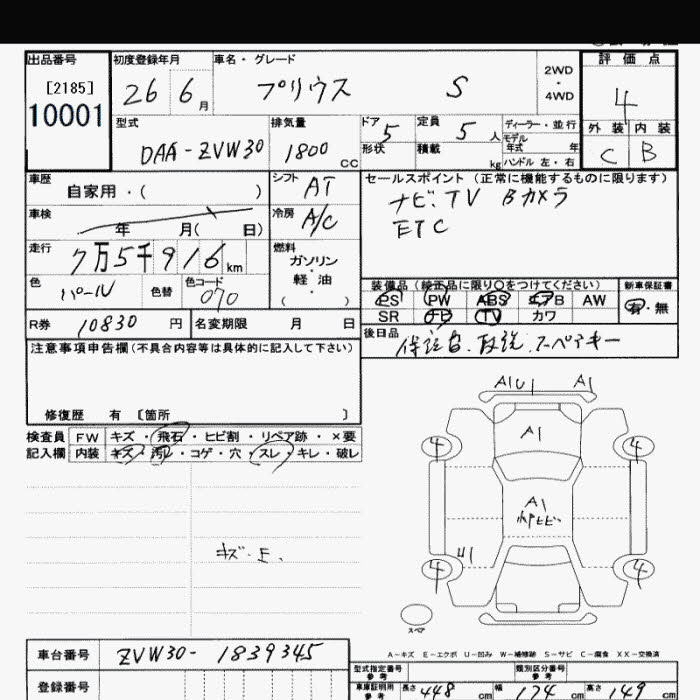 出品番号 [2185] 10001
初度登録年月 26 6月
車名・グレード プリウス S
2WD・4WD
評価点 4
外装 C 内装 B
型式 DAA-ZVW30
排気量 1800 CC
ドア 5 形状
定員 5人 積載 kg
ディーラー・並行
モデル年式 年
ハンドル 左・右
車歴 自家用・( )
シフト AT
セールスポイント(正常に機能するものに限ります)
ナビ.TV Bカメラ
ETC
車検 年 月( 日)
冷房 A/C
走行 7万5千916km
燃料 ガソリン・軽油・( )
色 パール 色替 色コード 070
装備品(純正品に限り○をつけてください)
PS PW ABS エアB AW
SR ナビ TV カワ
新車保証書 有・無
R券 10830円 名変期限 月 日
後日品 保証書.取説.スペアキー
注意事項申告欄(不具合内容等は具体的に記入して下さい)
修復歴 有 〔箇所 〕
検査員記入欄
FW キズ・飛石・ヒビ割・リペア跡・×要
内装 キズ・汚レ・コゲ・穴・スレ・キレ・破レ
キズ・E.
A1U1 A1
A1
4 4
A1
U1
4 4
スペア
A-キズ E-エクボ U-凹み W-補修跡 S-サビ C-腐食 XX-交換済
車台番号 ZVW30-1839345
登録番号
型式指定番号 参考 類別区分番号 参考
車庫証明用 参考 長さ 448cm 幅 174cm 高さ 149cm